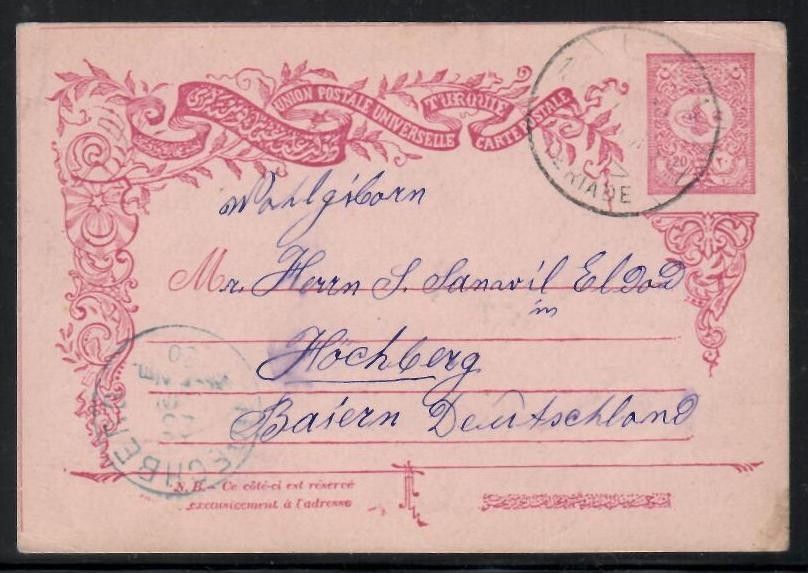 UNION POSTALE UNIVERSELLE
TURQUIE
CARTE POSTALE
20
TIBERIADE
Wohlgiborn
Mr. Herrn S. Samvil Eldod
in
Höchberg
Baiern Deutschland
HOECHBERG
N.B. - Ce côté-ci est réservé
exclusivement à l'adresse